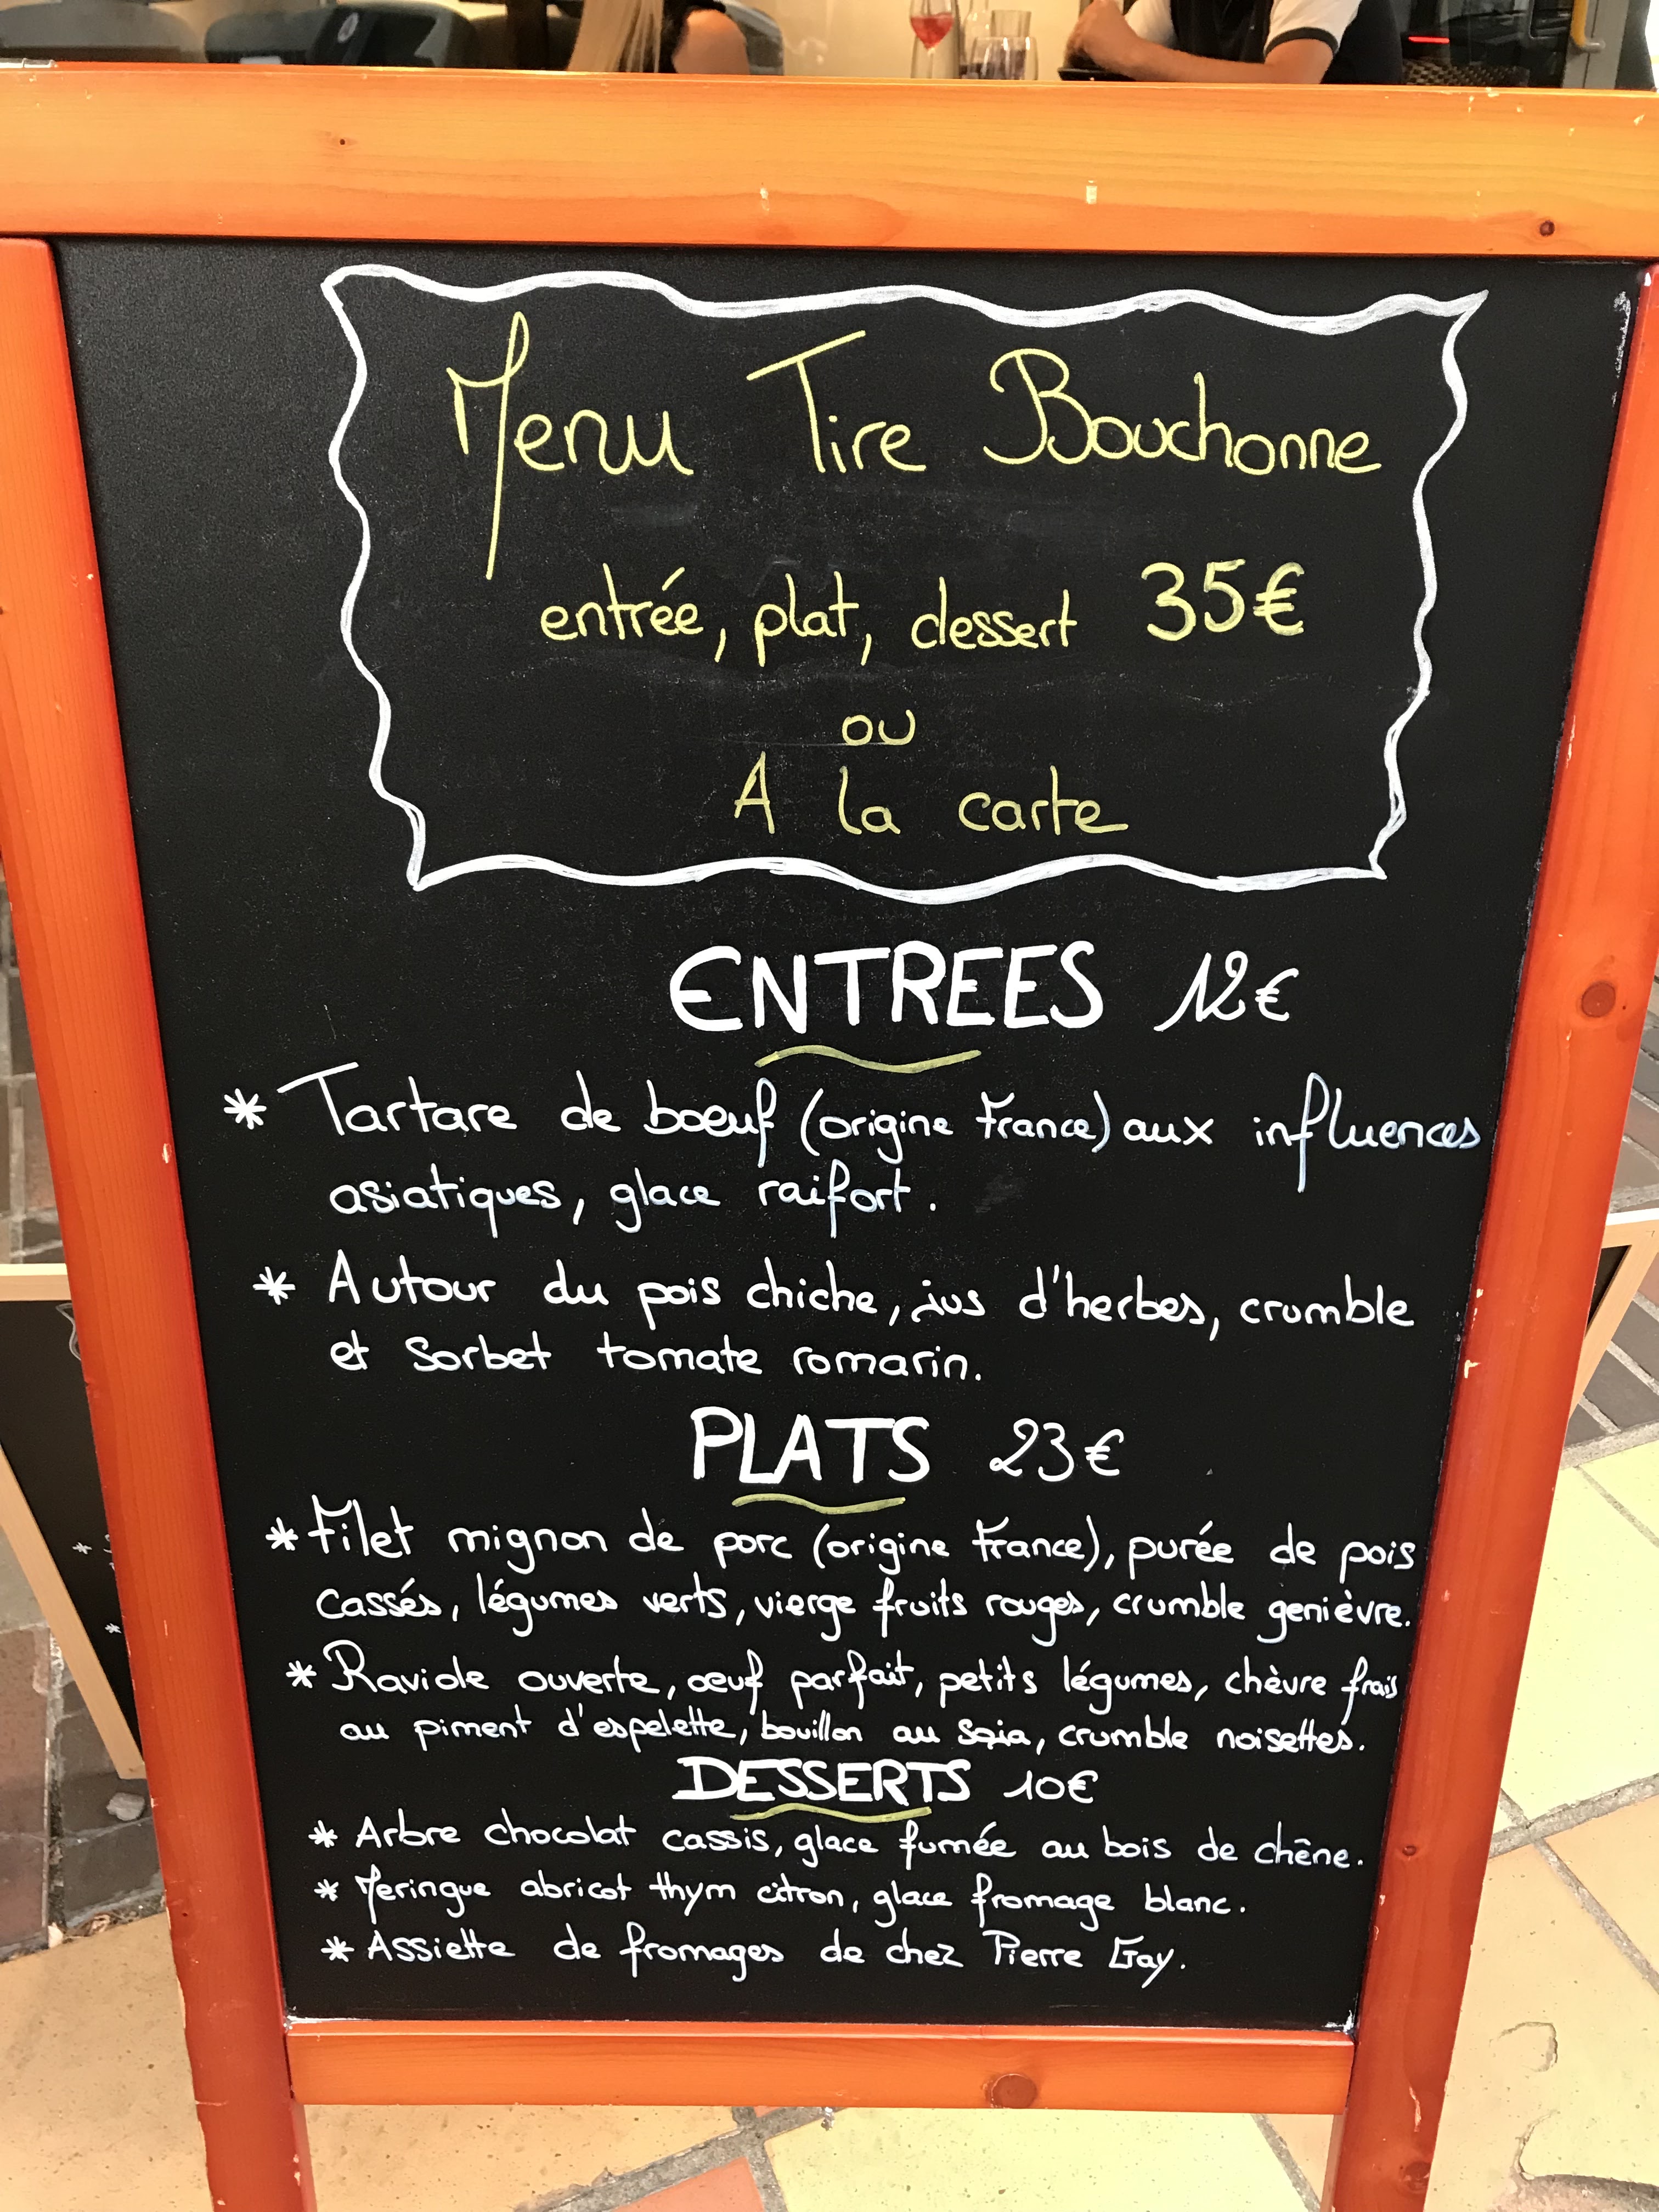 Menu Tire Bouchonne
entrée, plat, dessert 35€
ou
A la carte
ENTREES 12€
* Tartare de bœuf (origine France) aux influences
asiatiques, glace raifort.
* Autour du pois chiche, jus d'herbes, crumble
et sorbet tomate romarin.
PLATS 23€
* Filet mignon de porc (origine France), purée de pois
cassés, légumes verts, vierge fruits rouges, crumble genièvre.
* Raviole ouverte, œuf parfait, petits légumes, chèvre frais
au piment d'espelette, bouillon au soja, crumble noisettes.
DESSERTS 10€
* Arbre chocolat cassis, glace fumée au bois de chêne.
* Meringue abricot thym citron, glace fromage blanc.
* Assiette de fromages de chez Pierre Gay.